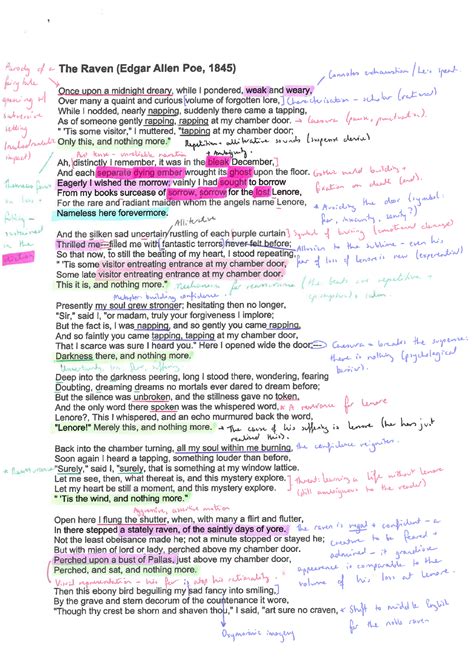 The Raven (Edgar Allen Poe, 1845)
Parody of a
fairytale
opening
Once upon a midnight dreary, while I pondered, weak and weary,
Connotes exhaustion / he's spent.
Over many a quaint and curious volume of forgotten lore,
Characterisation - scholar (rational)
While I nodded, nearly napping, suddenly there came a tapping,
As of someone gently rapping, rapping at my chamber door.
Caesura
" 'Tis some visitor," I muttered, "tapping at my chamber door;
Only this, and nothing more."
Repetition + alliterative sounds (suspense
unreliable narrator
Ah, distinctly I remember, it was in the bleak December,
And each separate dying ember wrought its ghost upon the floor.
Gothic world building +
fixation on death
Eagerly I wished the morrow; vainly I had sought to borrow
From my books surcease of sorrow, sorrow for the lost Lenore,
Avoiding the door (symbol:
For the rare and radiant maiden whom the angels name Lenore,
fear, insanity,
Nameless here forevermore.
Alliteration
And the silken sad uncertain rustling of each purple curtain
Symbol of
Thrilled me---filled me with fantastic terrors never felt before;
Allusion to the sublime - even his
So that now, to still the beating of my heart, I stood repeating,
fear of loss of Lenore is new
" 'Tis some visitor entreating entrance at my chamber door,
Some late visitor entreating entrance at my chamber door.
This it is, and nothing more."
Mechanism for reassurance
Presently my soul grew stronger; hesitating then no longer,
"Sir," said I, "or madam, truly your forgiveness I implore;
But the fact is, I was napping, and so gently you came rapping,
And so faintly you came tapping, tapping at my chamber door,
That I scarce was sure I heard you." Here I opened wide the door;---
Caesura - breaks the suspense:
Darkness there, and nothing more.
there is nothing (psychological
barrier).
Deep into the darkness peering, long I stood there, wondering, fearing
Doubting, dreaming dreams no mortals ever dared to dream before;
But the silence was unbroken, and the stillness gave no token,
And the only word there spoken was the whispered word,
for Lenore
Lenore?, This I whispered, and an echo murmured back the word,
"Lenore!" Merely this, and nothing more.
The cause of his suffering is Lenore (he has just
realised this).
Back into the chamber turning, all my soul within me burning,
the confidence reignites.
Soon again I heard a tapping, something louder than before,
"Surely," said I, "surely, that is something at my window lattice.
Let me see, then, what thereat is, and this mystery explore.
a life without Lenore
Let my heart be still a moment, and this mystery explore.
(still ambiguous to the reader)
" 'Tis the wind, and nothing more."
Aggressive, assertive motion
Open here I flung the shutter, when, with many a flirt and flutter,
In there stepped a stately raven, of the saintly days of yore.
the raven is regal + confident - a
Not the least obeisance made he; not a minute stopped or stayed he;
creature to be feared +
But with mien of lord or lady, perched above my chamber door.
admired - it
Perched upon a bust of Pallas, just above my chamber door,
appearance is comparable to the
Perched, and sat, and nothing more.
volume of his loss at Lenore.
Visual representation - his fear is atop his rationality.
Then this ebony bird beguiling my sad fancy into smiling,
By the grave and stern decorum of the countenance it wore,
"Though thy crest be shorn and shaven thou," I said, "art sure no craven,
Shift to middle English
for the noble raven
Oxymoronic imagery